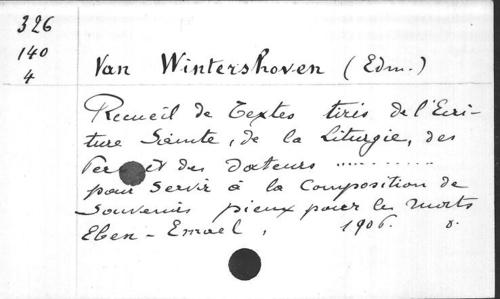 326
140
4
Van Wintershoven (Edm.)
Recueil de Textes tirés de l'Ecri-
ture Sainte, de la Liturgie, des
et des docteurs ..........
pour servir à la Composition de
Souvenirs pieux pour les morts
Eben-Emael, 1906. 8.